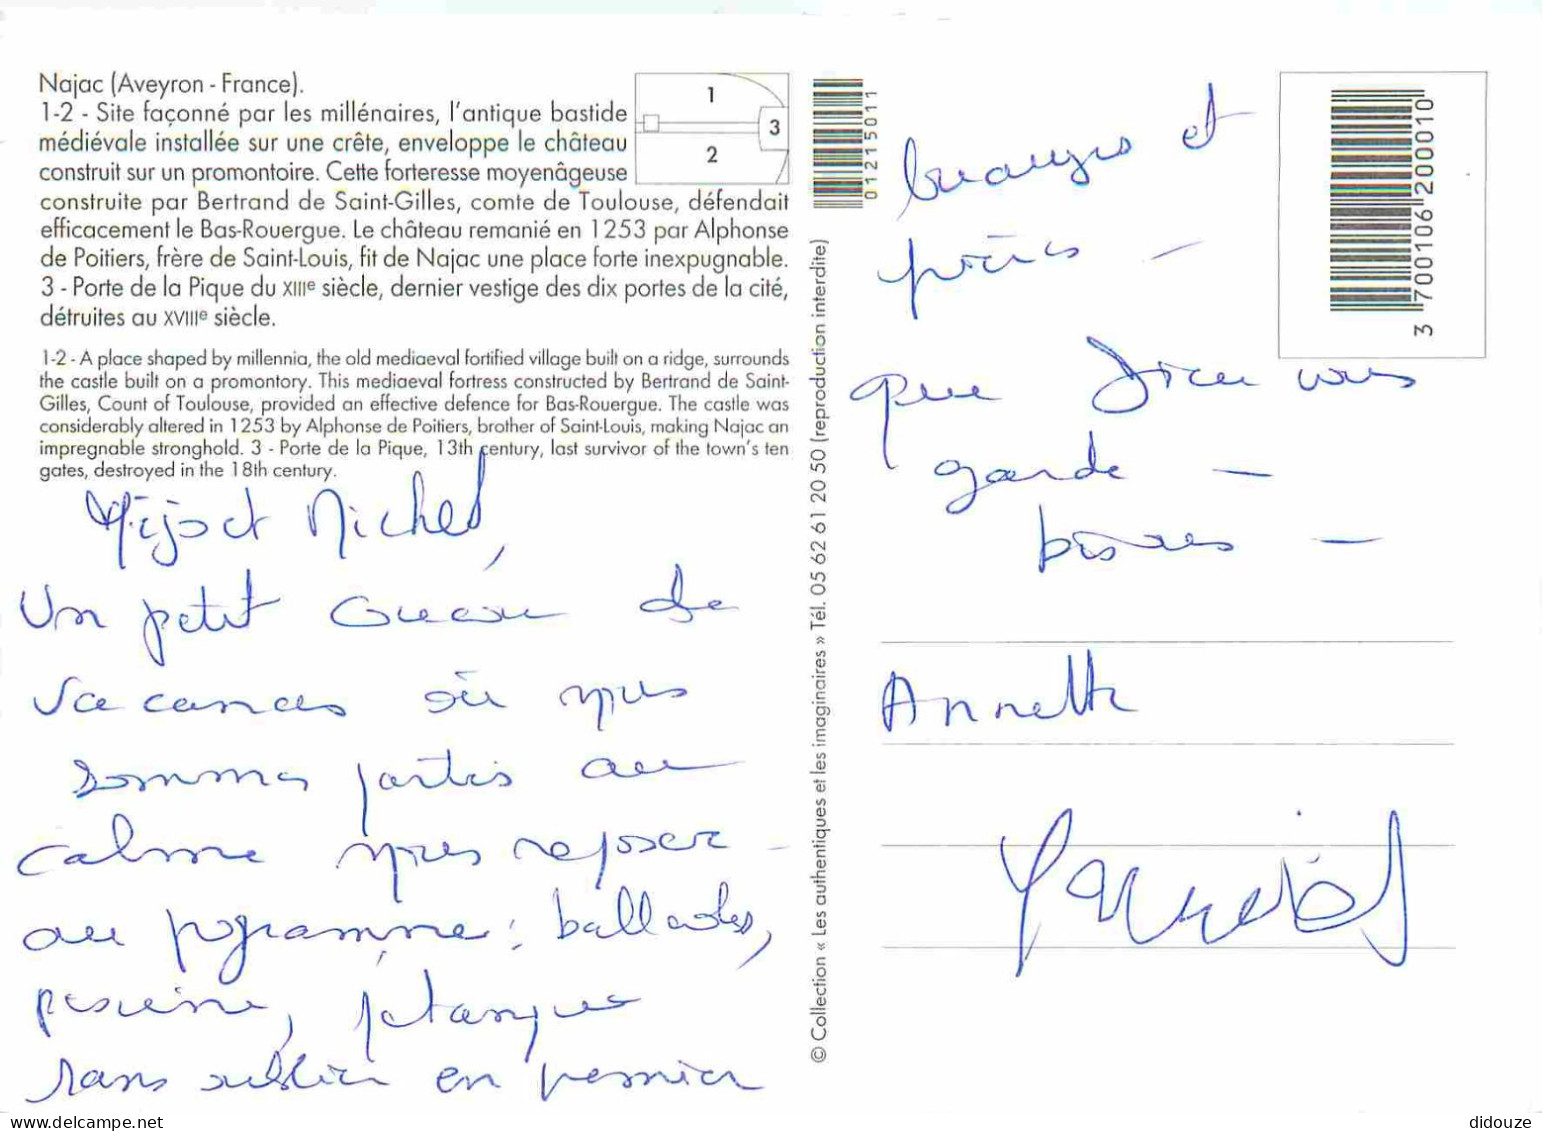 Najac (Aveyron - France).
1-2 - Site façonné par les millénaires, l'antique bastide
médiévale installée sur une crête, enveloppe le château
construit sur un promontoire. Cette forteresse moyenâgeuse
construite par Bertrand de Saint-Gilles, comte de Toulouse, défendait
efficacement le Bas-Rouergue. Le château remanié en 1253 par Alphonse
de Poitiers, frère de Saint-Louis, fit de Najac une place forte inexpugnable.
3 - Porte de la Pique du XIIIe siècle, dernier vestige des dix portes de la cité,
détruites au XVIIIe siècle.
1
3
2
1-2 - A place shaped by millennia, the old mediaeval fortified village built on a ridge, surrounds
the castle built on a promontory. This mediaeval fortress constructed by Bertrand de Saint-
Gilles, Count of Toulouse, provided an effective defence for Bas-Rouergue. The castle was
considerably altered in 1253 by Alphonse de Poitiers, brother of Saint-Louis, making Najac an
impregnable stronghold. 3 - Porte de la Pique, 13th century, last survivor of the town's ten
gates, destroyed in the 18th century.
Mijo et Michel,
Un petit de
vacances où nous
sommes partis au
calme nous reposer -
au programme : ballades,
piscine, pétanque
sans oublier en premier
© Collection « Les authentiques et les imaginaires » Tél. 05 62 61 20 50 (reproduction interdite)
01215011
3 700106 200010
louanges et
prières -
que Dieu vous
garde -
bisous -
Annette